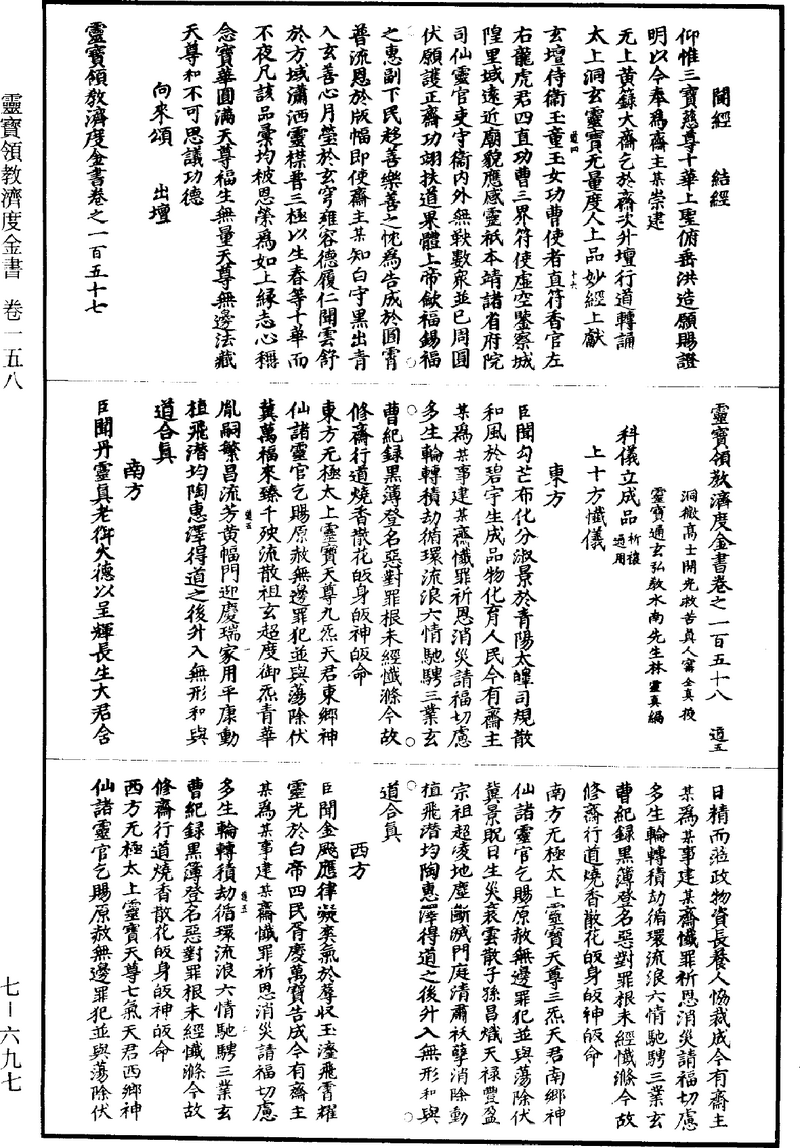 靈寶領教濟度金書　卷一五八
七－六九七
聞經　　結經
仰惟三寶慈尊十華上聖俯垂洪造願賜證
明以今奉為齋主某崇建
无上黃籙大齋乞於齋次升壇行道轉誦
太上洞玄靈寶无量度人上品妙經上獻
道四　十六
玄壇侍衛玉童玉女功曹使者直符香官左
右龍虎君四直功曹三界符使虛空鑒察城
隍里域遠近廟貌應感靈祇本靖諸省府院
司仙靈官吏守衛內外無鞅數眾並已周圓
伏願護正齋功翊扶道果體上帝歆福錫福
之惠副下民遷善樂善之忱為告成於圓霄
普流恩於版幅即使齋主某知白守黑出青
入玄善心月瑩於玄穹雍容德履仁聞雲舒
於方域瀟洒靈襟普三極以生春等十華而
不夜凡該品彙均被恩榮為如上緣志心稱
念寶華圓滿天尊福生無量天尊無邊法藏
天尊和不可思議功德
向來頌　出壇
靈寶領教濟度金書卷之一百五十七
靈寶領教濟度金書卷之一百五十八　道五
洞微高士開光救苦真人甯全真授
靈寶通玄弘教水南先生林靈真編
科儀立成品祈禳通用
上十方懺儀
東方
臣聞勾芒布化分淑景於青陽太皥司規散
和風於碧宇生成品物化育人民今有齋主
某為某事建某齋懺罪祈恩消災請福切慮
多生輪轉積劫循環流浪六情馳騁三業玄
曹紀錄黑簿登名惡對罪根未經懺滌今故
修齋行道燒香散花皈身皈神皈命
東方无極太上靈寶天尊九炁天君東鄉神
仙諸靈官乞賜原赦無邊罪犯並與蕩除伏
冀萬福來臻千殃流散祖玄超度御炁青華
道五
胤嗣繁昌流芳黃幅門迎慶瑞家用平康動
植飛潛均陶惠澤得道之後升入無形和與
道合真
南方
臣聞丹靈真老御火德以呈輝長生大君含
日精而蒞政物資長養人協裁成今有齋主
某為某事建某齋懺罪祈恩消災請福切慮
多生輪轉積劫循環流浪六情馳騁三業玄
曹紀錄黑簿登名惡對罪根未經懺滌今故
修齋行道燒香散花皈身皈神皈命
南方无極太上靈寶天尊三炁天君南鄉神
仙諸靈官乞賜原赦無邊罪犯並與蕩除伏
冀景貺日生災衰雲散子孫昌熾天祿豐盈
宗祖超凌地塵斷滅門庭清肅袄孽消除動
植飛潛均陶惠澤得道之後升入無形和與
道合真
西方
臣聞金颷應律凝爽氣於蓐收玉瀣飛霄耀
靈光於白帝四民胥慶萬寶告成今有齋主
某為某事建某齋懺罪祈恩消災請福切慮
道五
多生輪轉積劫循環流浪六情馳騁三業玄
曹紀錄黑簿登名惡對罪根未經懺滌今故
修齋行道燒香散花皈身皈神皈命
西方无極太上靈寶天尊七氣天君西鄉神
仙諸靈官乞賜原赦無邊罪犯並與蕩除伏